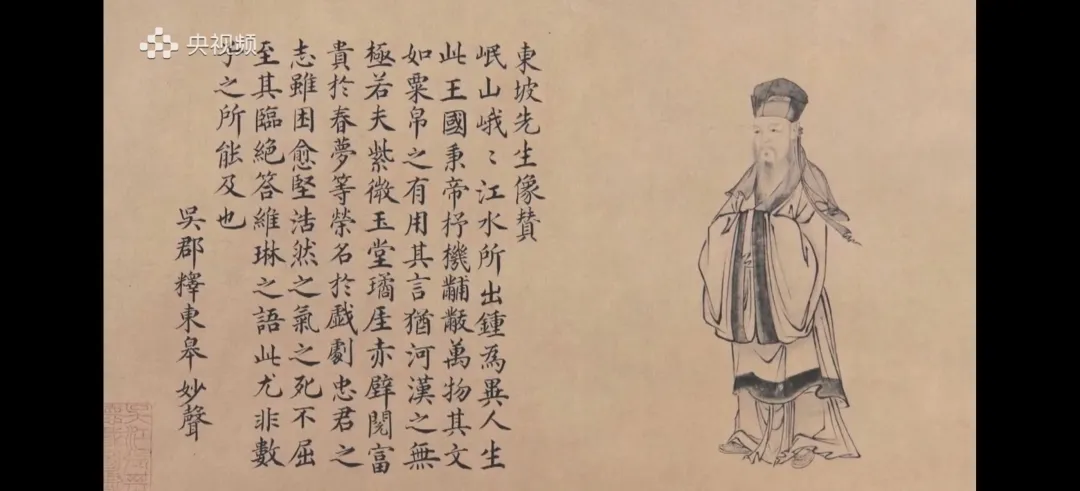 央视频
東坡先生像贊
岷山峨〻江水所出鍾為異人生
此王國秉帝杼機黼黻萬物其文
如粟帛之有用其言猶河漢之無
極若夫紫微玉堂璚厓赤壁閱富
貴於春夢等榮名於戱劇忠君之
志雖困愈堅浩然之氣之死不屈
至其臨絕答維琳之語此尤非數
之所能及也
吳郡釋東皋妙聲